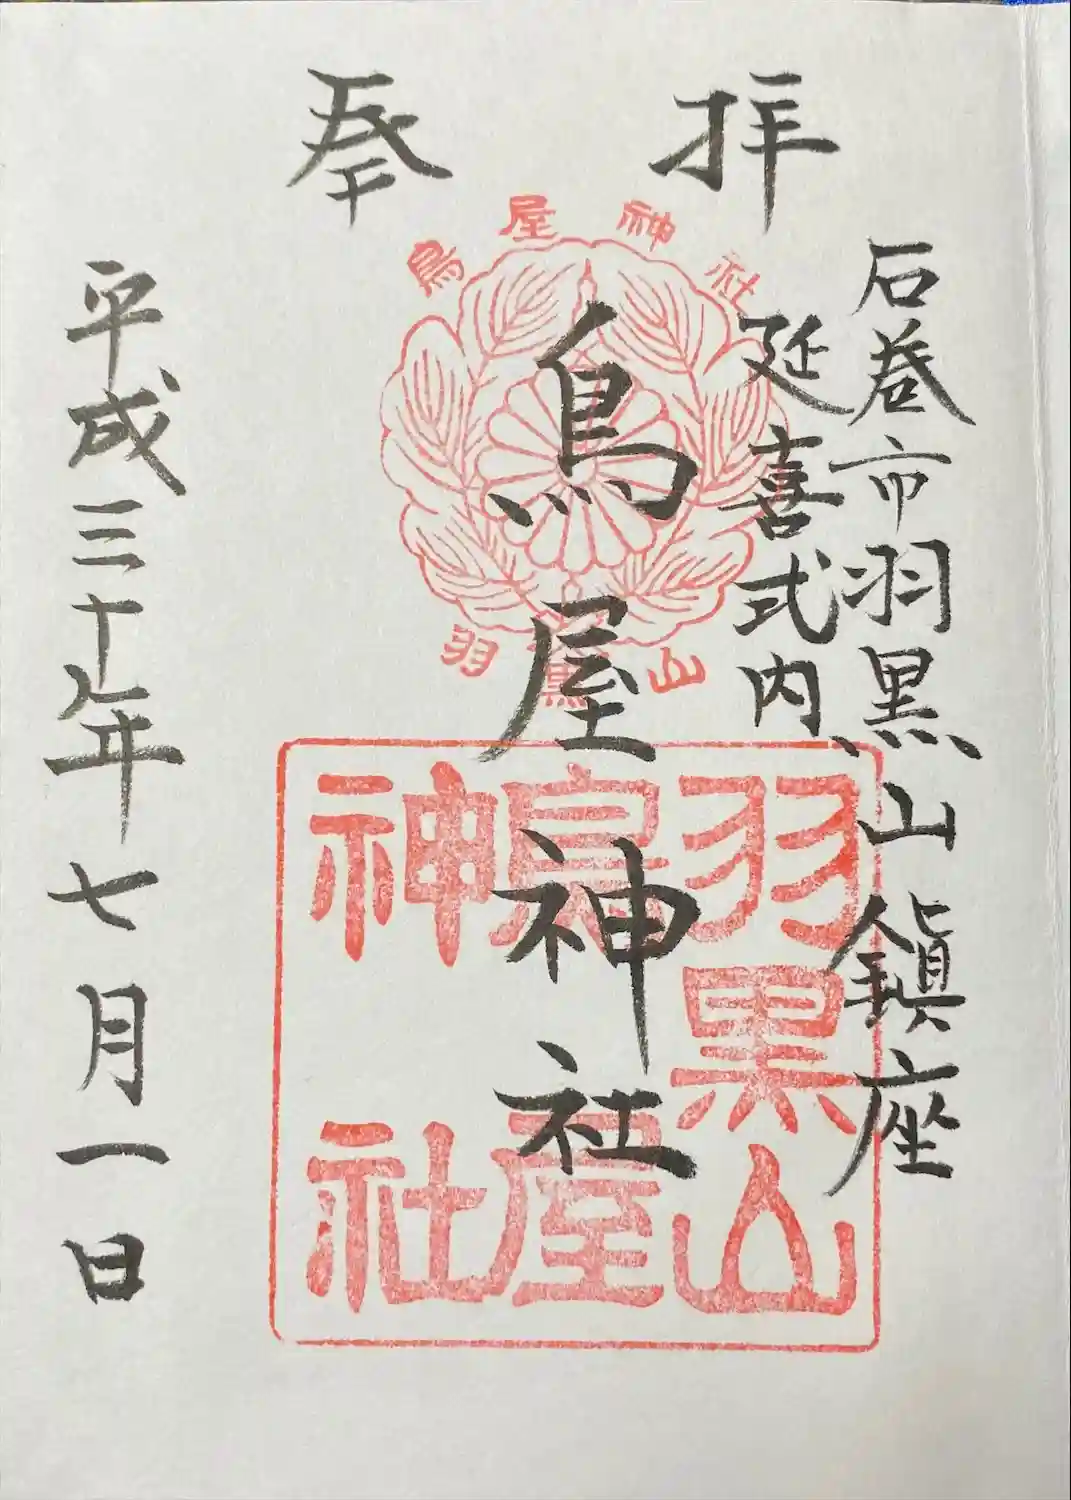 奉拝
石巻市羽黒山鎮座
延喜式内
鳥屋神社
平成三十年七月一日
鳥屋神社
羽黒山
羽黒山
鳥屋
神社